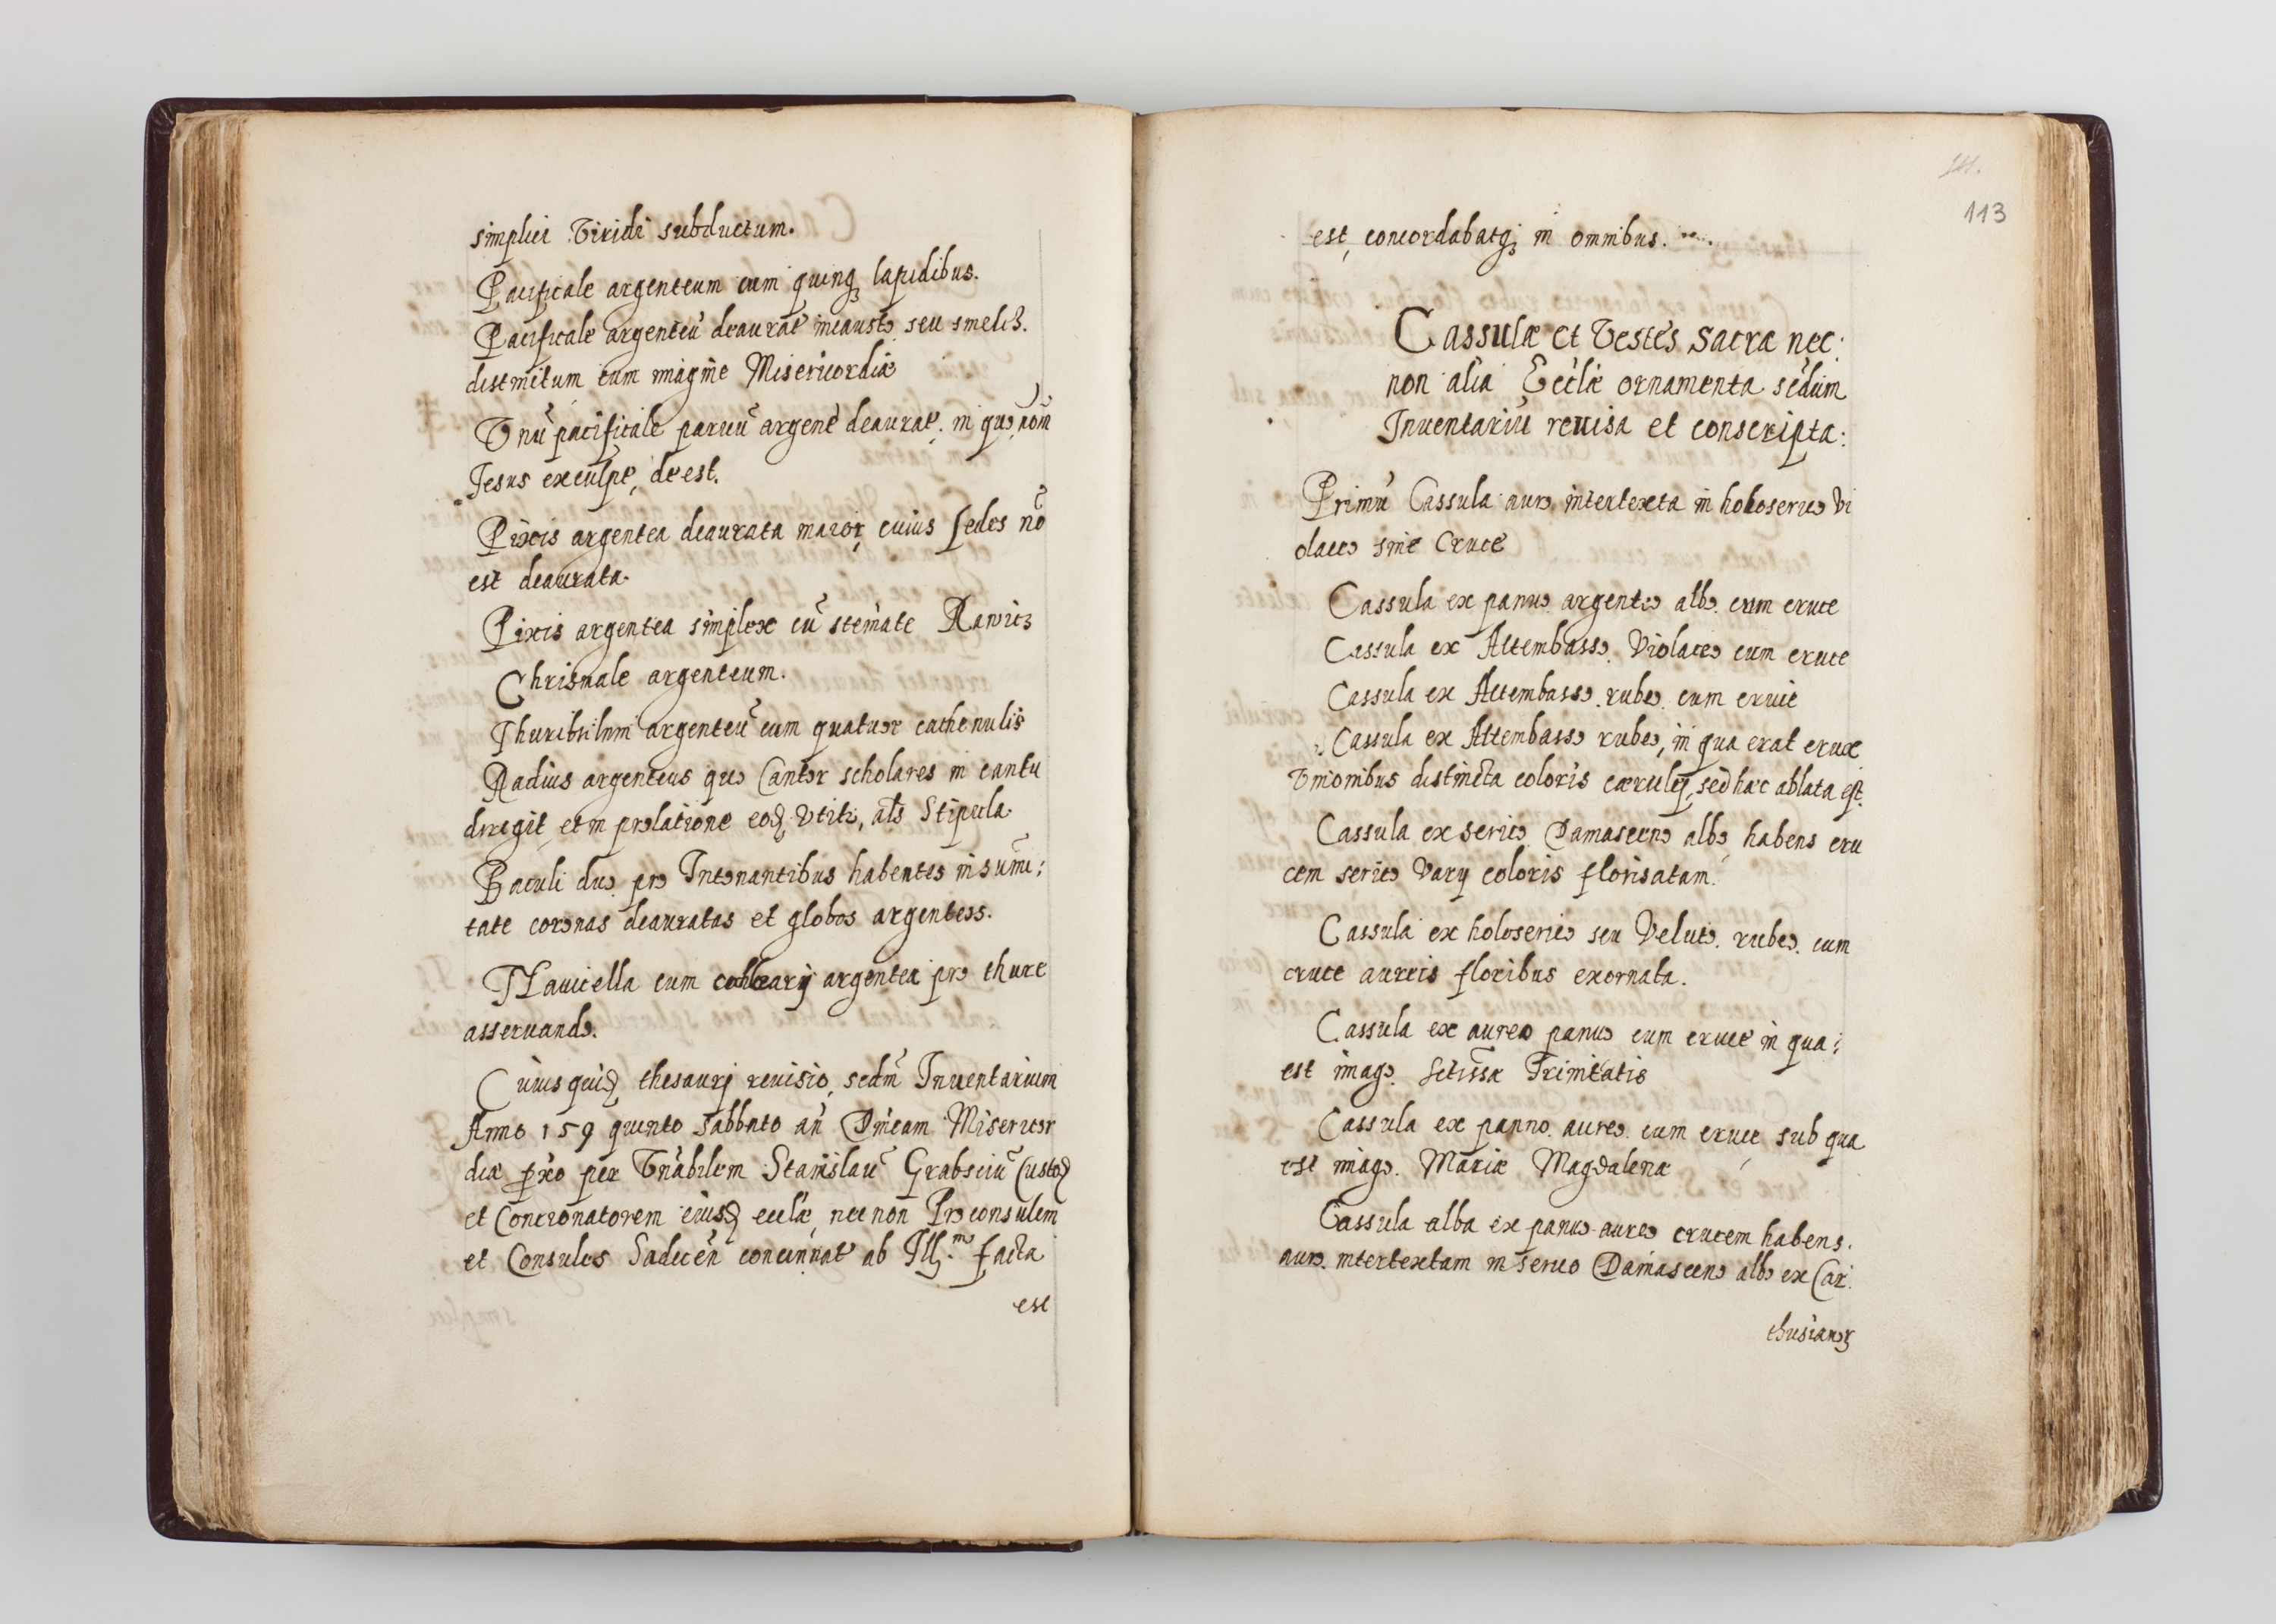 simplici Viridi subductum.
Pacificale argenteum cum quinqꝫ lapidibus.
Pacificale argenteū deaurat̄ incausto seu smelcz.
distinctum cum imagine Misericordiæ
Vnū pacificale paruū argent̄ deaurat̄. in quo nom̄
Jesus exculpt̄, deest.
Pixis argentea deaurata maior, cuius sedes nō
est deaurata.
Pixis argentea simplex cū stem̄ate Rawicz
Chrismale argenteum.
Thuribulum argenteū cum quatuor cathenulis
Radius argenteus quo Cantor scholares in cantu
diregit, et in prolatione eoꝫ Vtitr, als Stipula.
Baculi duo pro Intonantibus habentes in sum̄i:
tate coronas deauratas et globos argenteos.
Nauicella cum cohleary argentea pro thure
asseruando.
Cuiusquidꝫ thesaurj reuisio, secdm̄ Inuentarium
Anno 159 quinto Sabbato an̄ Dnicam Misericor
diæ pxo per Vnabilem Stanislaū Grabsciū Custodꝫ
et Concionatorem eiusdꝫ ecclæ, nec non Proconsulem
et Consules Sadecen̄ concinnat̄ ab Ill.mo facta
est
113
est, concordabatqꝫ in omnibus.
Cassulæ et Vestes Sacra nec:
non alia Ecclæ ornamenta secdum
Inuentariū reuisa et conscripta:
Primū Cassula auro intertexta in holoserico Vi
olaceo sine Cruce
Cassula ex panno argenteo albo cum cruce
Cassula ex Altembasso Violaceo cum cruce
Cassula ex Altembasso rubeo cum cruce
Cassula ex Altembasso rubeo, in qua erat crux
Vnionibus distincta coloris cærulej, sed hæc ablata est.
Cassula ex serico Damasceno albo habens cru
cem serico Vary coloris florisatam.
Cassula ex holoserico seu Veluto rubeo cum
cruce aureis floribus exornata.
Cassula ex aureo panno cum cruce in qua:
est imago Sctissæ Trinitatis
Cassula ex panno aureo cum cruce sub qua
est imago Mariæ Magdalenæ
Cassula alba ex panno aureo crucem habens.
auro intertextam in serico Damasceno albo ex Car.
thusianoꝝ